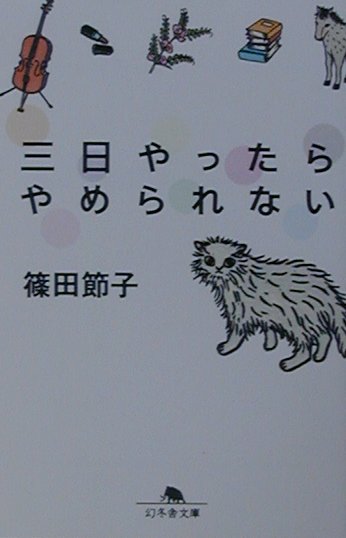 三日やったら
やめられない
篠田節子
幻冬舎文庫